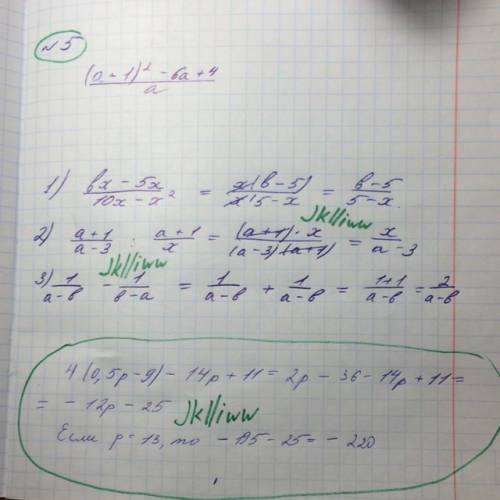 № 5
(a + 1)² - 6a + 4 / a
1) bx - 5x / 10x - x² = x(b - 5) / x(5 - x = b - 5 / 5 - x.
2) a + 1 / a - 3 : a + 1 / x = (a + 1) · x / (a - 3)(a + 1) = x / a - 3
Jk//iww
3) 1 / a - b - 1 / b - a = 1 / a - b + 1 / a - b = 1 + 1 / a - b = 2 / a - b
Jk//iww
4 (0,5p - 9) - 14p + 11 = 2p - 36 - 14p + 11 =
= - 12p - 25
Jk//iww
Если p = 13, то - 195 - 25 = - 220